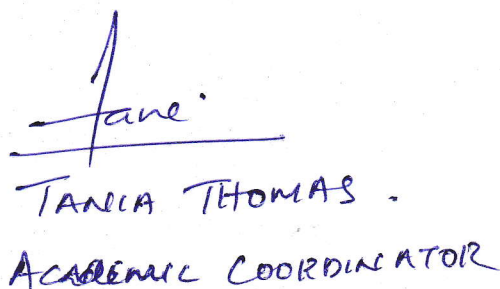 Tani
TANIA THOMAS.
ACADEMIC COORDINATOR